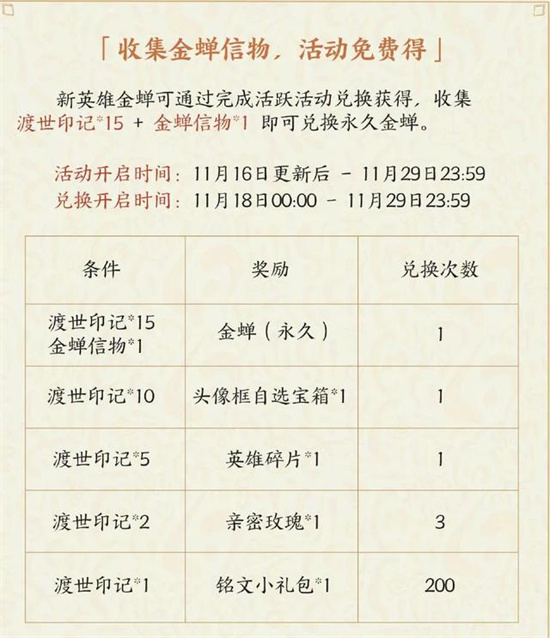 「收集金蝉信物，活动免费得」
新英雄金蝉可通过完成活跃活动兑换获得，收集
渡世印记*15 + 金蝉信物*1 即可兑换永久金蝉。
活动开启时间：11月16日更新后 - 11月29日23:59
兑换开启时间：11月18日00:00 - 11月29日23:59
条件 奖励 兑换次数
渡世印记*15
金蝉信物*1 金蝉（永久） 1
渡世印记*10 头像框自选宝箱*1 1
渡世印记*5 英雄碎片*1 1
渡世印记*2 亲密玫瑰*1 3
渡世印记*1 铭文小礼包*1 200